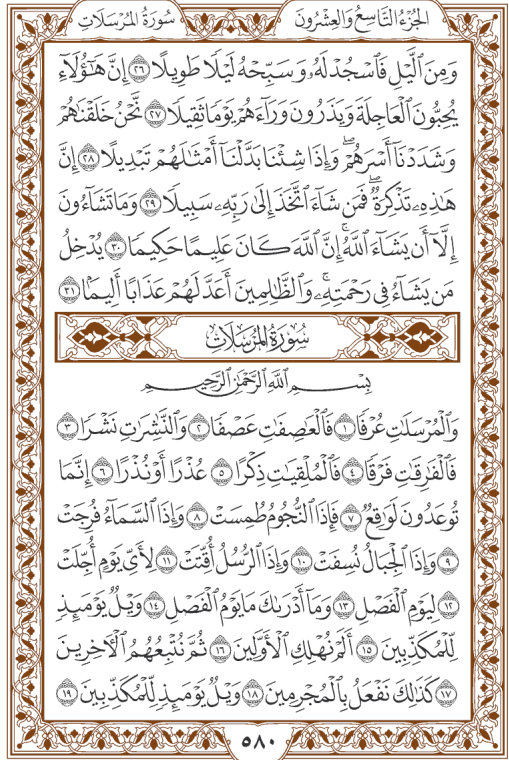 الجزء التاسع والعشرون
سورة المرسلات
وَمِنَ ٱلَّيْلِ فَٱسْجُدْ لَهُۥ وَسَبِّحْهُ لَيْلًا طَوِيلًا ٢٦ إِنَّ هَٰٓؤُلَآءِ
يُحِبُّونَ ٱلْعَاجِلَةَ وَيَذَرُونَ وَرَآءَهُمْ يَوْمًا ثَقِيلًا ٢٧ نَّحْنُ خَلَقْنَٰهُمْ
وَشَدَدْنَآ أَسْرَهُمْ ۖ وَإِذَا شِئْنَا بَدَّلْنَآ أَمْثَٰلَهُمْ تَبْدِيلًا ٢٨ إِنَّ
هَٰذِهِۦ تَذْكِرَةٌ ۖ فَمَن شَآءَ ٱتَّخَذَ إِلَىٰ رَبِّهِۦ سَبِيلًا ٢٩ وَمَا تَشَآءُونَ
إِلَّآ أَن يَشَآءَ ٱللَّهُ ۚ إِنَّ ٱللَّهَ كَانَ عَلِيمًا حَكِيمًا ٣٠ يُدْخِلُ
مَن يَشَآءُ فِى رَحْمَتِهِۦ ۚ وَٱلظَّٰلِمِينَ أَعَدَّ لَهُمْ عَذَابًا أَلِيمًۢا ٣١
سُورَةُ المُرْسَلَاتِ
بِسْمِ ٱللَّهِ ٱلرَّحْمَٰنِ ٱلرَّحِيمِ
وَٱلْمُرْسَلَٰتِ عُرْفًا ١ فَٱلْعَٰصِفَٰتِ عَصْفًا ٢ وَٱلنَّٰشِرَٰتِ نَشْرًا ٣
فَٱلْفَٰرِقَٰتِ فَرْقًا ٤ فَٱلْمُلْقِيَٰتِ ذِكْرًا ٥ عُذْرًا أَوْ نُذْرًا ٦ إِنَّمَا
تُوعَدُونَ لَوَٰقِعٌ ٧ فَإِذَا ٱلنُّجُومُ طُمِسَتْ ٨ وَإِذَا ٱلسَّمَآءُ فُرِجَتْ
٩ وَإِذَا ٱلْجِبَالُ نُسِفَتْ ١٠ وَإِذَا ٱلرُّسُلُ أُقِّتَتْ ١١ لِأَىِّ يَوْمٍ أُجِّلَتْ
١٢ لِيَوْمِ ٱلْفَصْلِ ١٣ وَمَآ أَدْرَىٰكَ مَا يَوْمُ ٱلْفَصْلِ ١٤ وَيْلٌ يَوْمَئِذٍ
لِّلْمُكَذِّبِينَ ١٥ أَلَمْ نُهْلِكِ ٱلْأَوَّلِينَ ١٦ ثُمَّ نُتْبِعُهُمُ ٱلْءَاخِرِينَ
١٧ كَذَٰلِكَ نَفْعَلُ بِٱلْمُجْرِمِينَ ١٨ وَيْلٌ يَوْمَئِذٍ لِّلْمُكَذِّبِينَ ١٩
٥٨٠